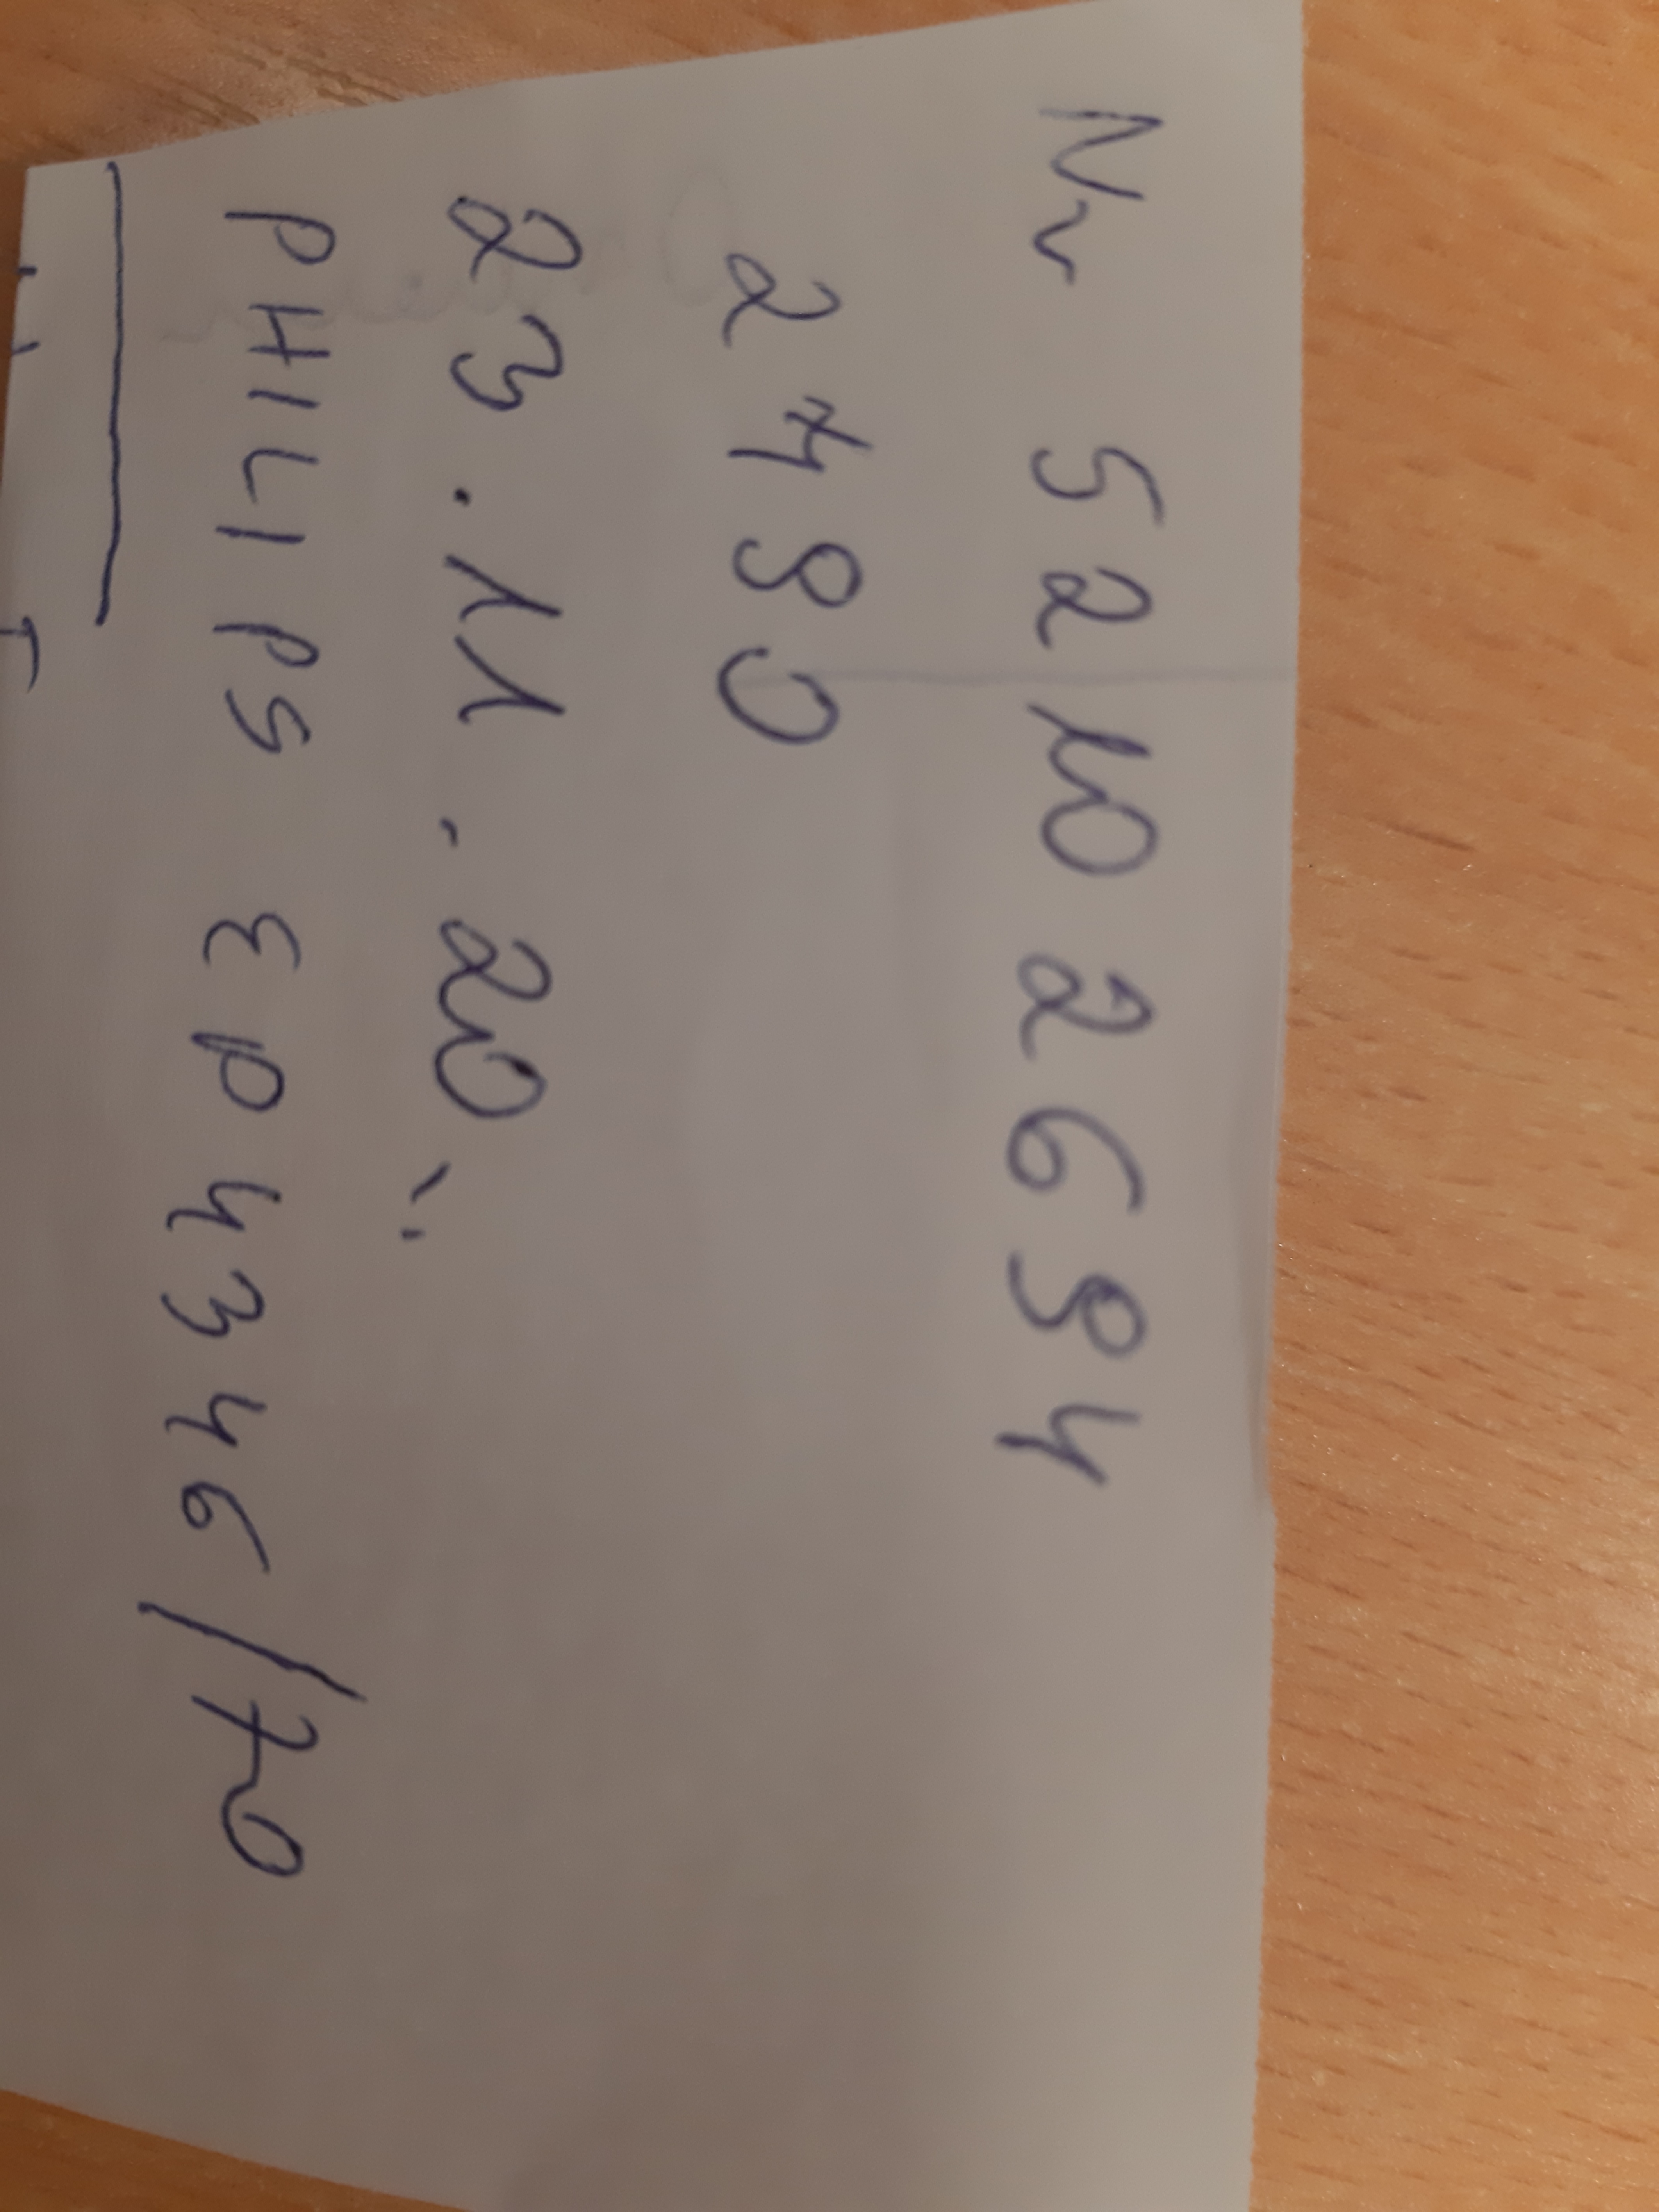 Nr 52 10 26 94
2490
23.11.20
PHILIPS EP4346/70